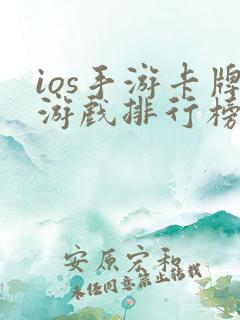 ios手游卡牌
游戏排行榜
安原宏和
未经同意禁止转载